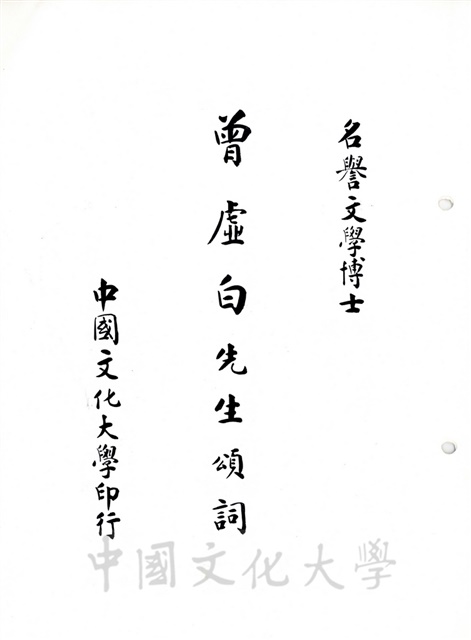 名譽文學博士
曾虛白先生頌詞
中國文化大學印行
中國文化大學